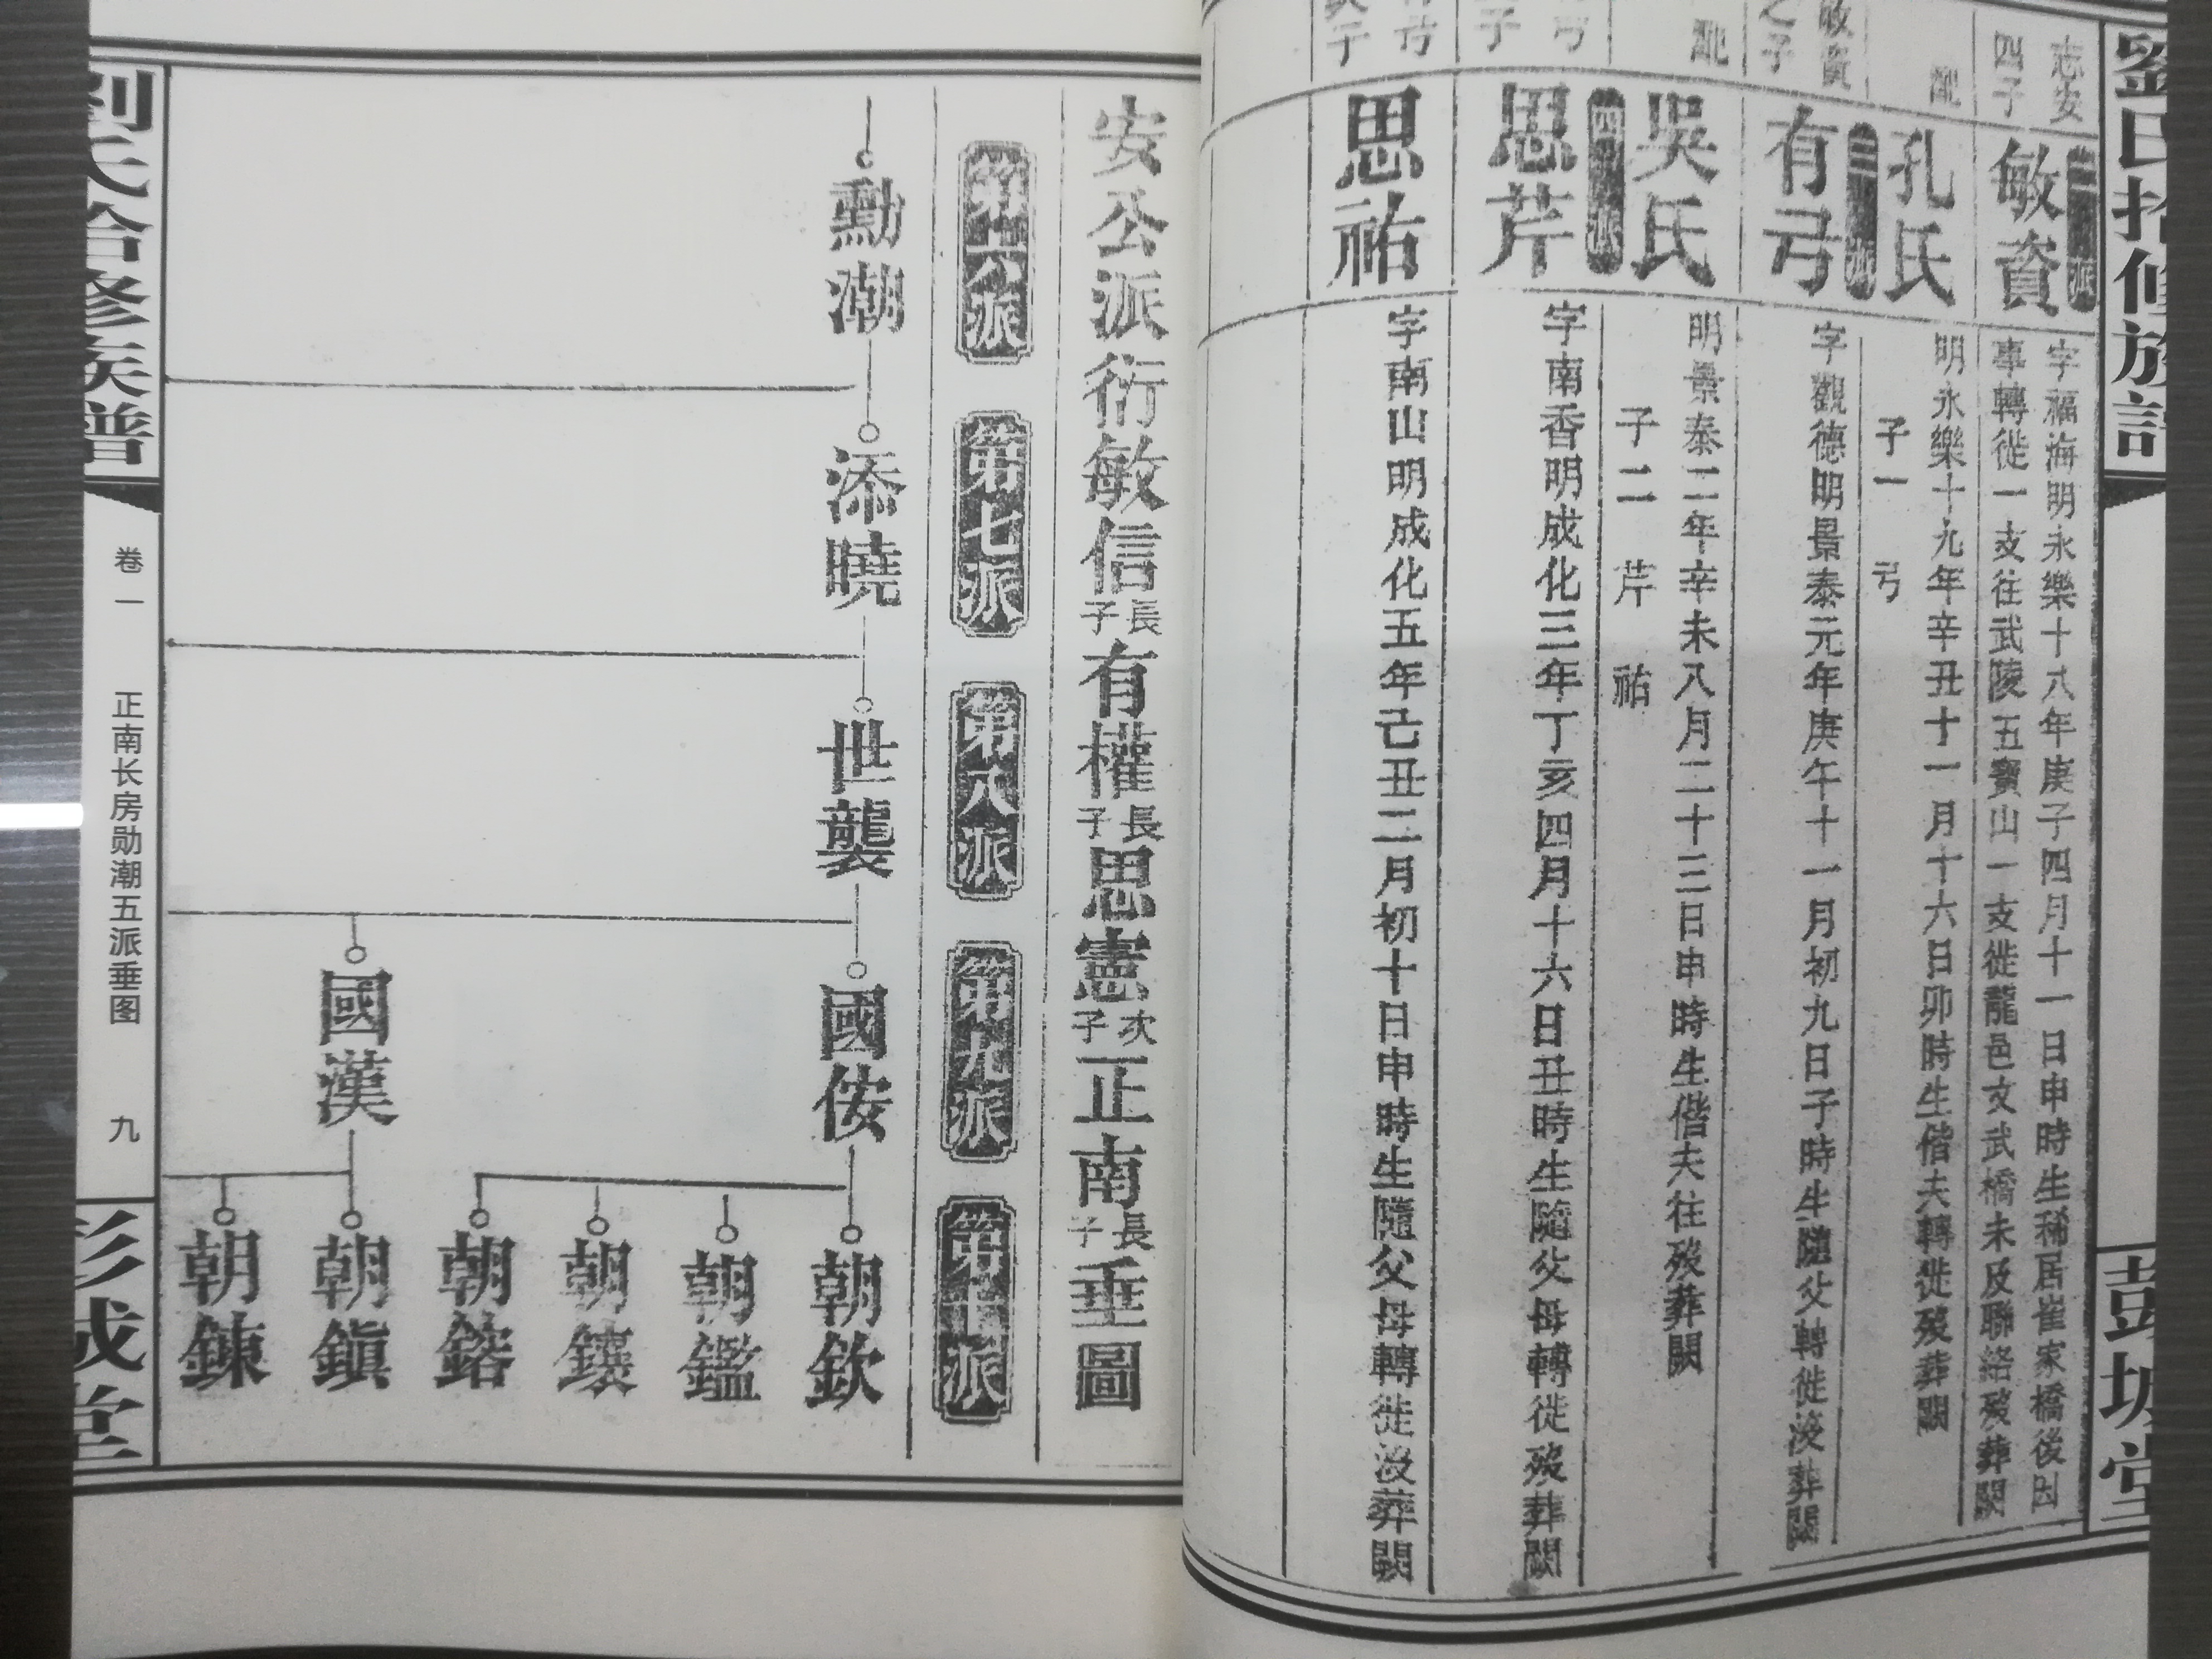 志安
四子
敏資
字福海明永樂十八年庚子四月十一日申時生稀居崔家橋後因
事轉徙一支往武陵五寶山一支徙龍邑文武橋未及聯絡歿葬闕
配
孔氏
明永樂十九年辛丑十一月十六日卯時生偕夫轉徙歿葬闕
子一 弓
敏資
之子
有弓
字觀德明景泰元年庚午十一月初九日子時生隨父轉徙沒葬闕
配
吳氏
明景泰二年辛未八月二十三日申時生偕夫往歿葬闕
子二 芹 祐
思芹
字南香明成化三年丁亥四月十六日丑時生隨父母轉徙歿葬闕
思祐
字南山明成化五年己丑二月初十日申時生隨父母轉徙沒葬闕
安公派衍敏信長子有權長子思憲次子正南長子垂圖
第六派
第七派
第八派
第九派
第十派
勳潮
添曉
世襲
國侒
國漢
朝欽
朝鑑
朝鑲
朝鎔
朝鎭
朝鍊
卷一
正南长房勋潮五派垂图
九